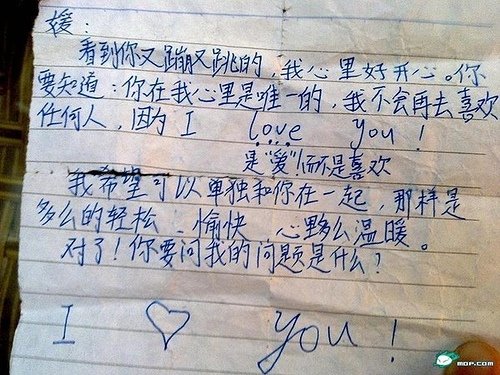 媛：
看到你又蹦又跳的，我心里好开心。你
要知道：你在我心里是唯一的，我不会再去喜欢
任何人，因为 I love you！
是“爱”而不是喜欢
我希望可以单独和你在一起，那样是
多么的轻松、愉快 心里多么温暖。
对了！你要问我的问题是什么？
I ♡ you！
MOP.COM